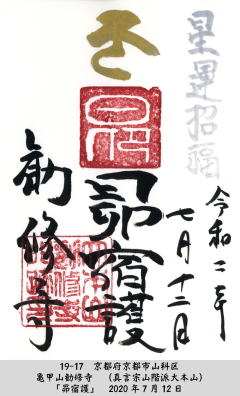 星運招福
令和二年
七月十二日
昴
昴宿護
勧修寺
19-17 京都府京都市山科区
亀甲山勧修寺 (真言宗山階派大本山)
「昴宿護」 2020年7月12日